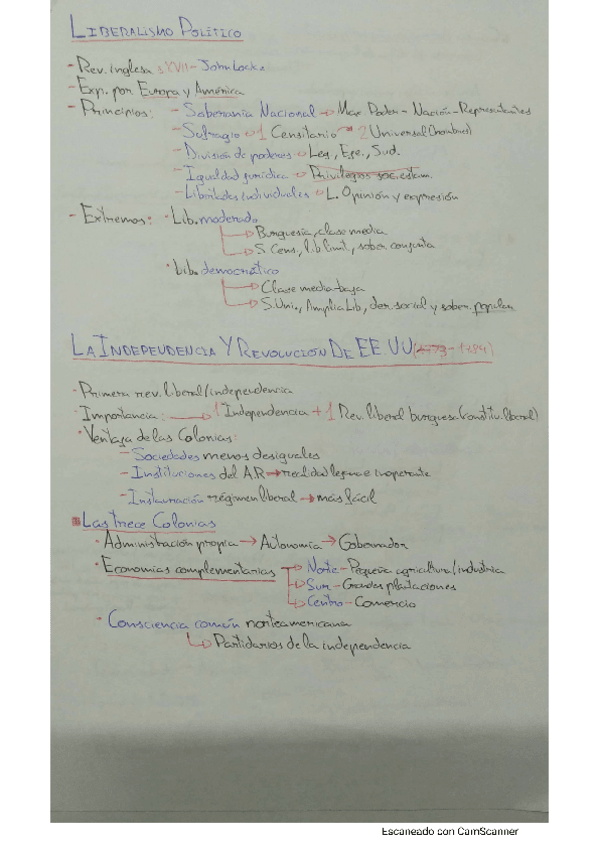 LIBERALISMO POLÍTICO
- Rev. inglesa s XVII - John Locke
- Exp. por Europa y América
- Principios: - Soberanía Nacional → Max. Poder - Nación - Representantes
- Sufragio → 1 Censitario → 2 Universal (hombre)
- División de poderes → Leg, Eje, Jud.
- Igualdad jurídica → Privilegios soc. estam.
- Libertades individuales → L. Opinión y expresión
- Extremos: · Lib. moderado
→ Burguesía, clase media
→ S. Cens, lib limit, sober conjunta
· Lib. democrático
→ Clase media-baja
→ S. Uni., Amplia Lib, der social y sober. popular
LA INDEPENDENCIA Y REVOLUCIÓN DE EE UU (1773-1784)
· Primera rev. liberal/independencia
· Importancia: → 1 Independencia + 1 Rev. liberal burguesa (constitu. liberal)
· Ventaja de las Colonias:
- Sociedades menos desiguales
- Instituciones del A.R → realidad lejana e inoperante
- Instauración régimen liberal → más fácil
Las trece Colonias
· Administración propia → Autonomía → Gobernador
· Economías complementarias → Norte - Pequeña agricultura/industria
→ Sur - Grandes plantaciones
→ Centro - Comercio
· Consciencia común norteamericana
→ Partidarios de la independencia
Escaneado con CamScanner